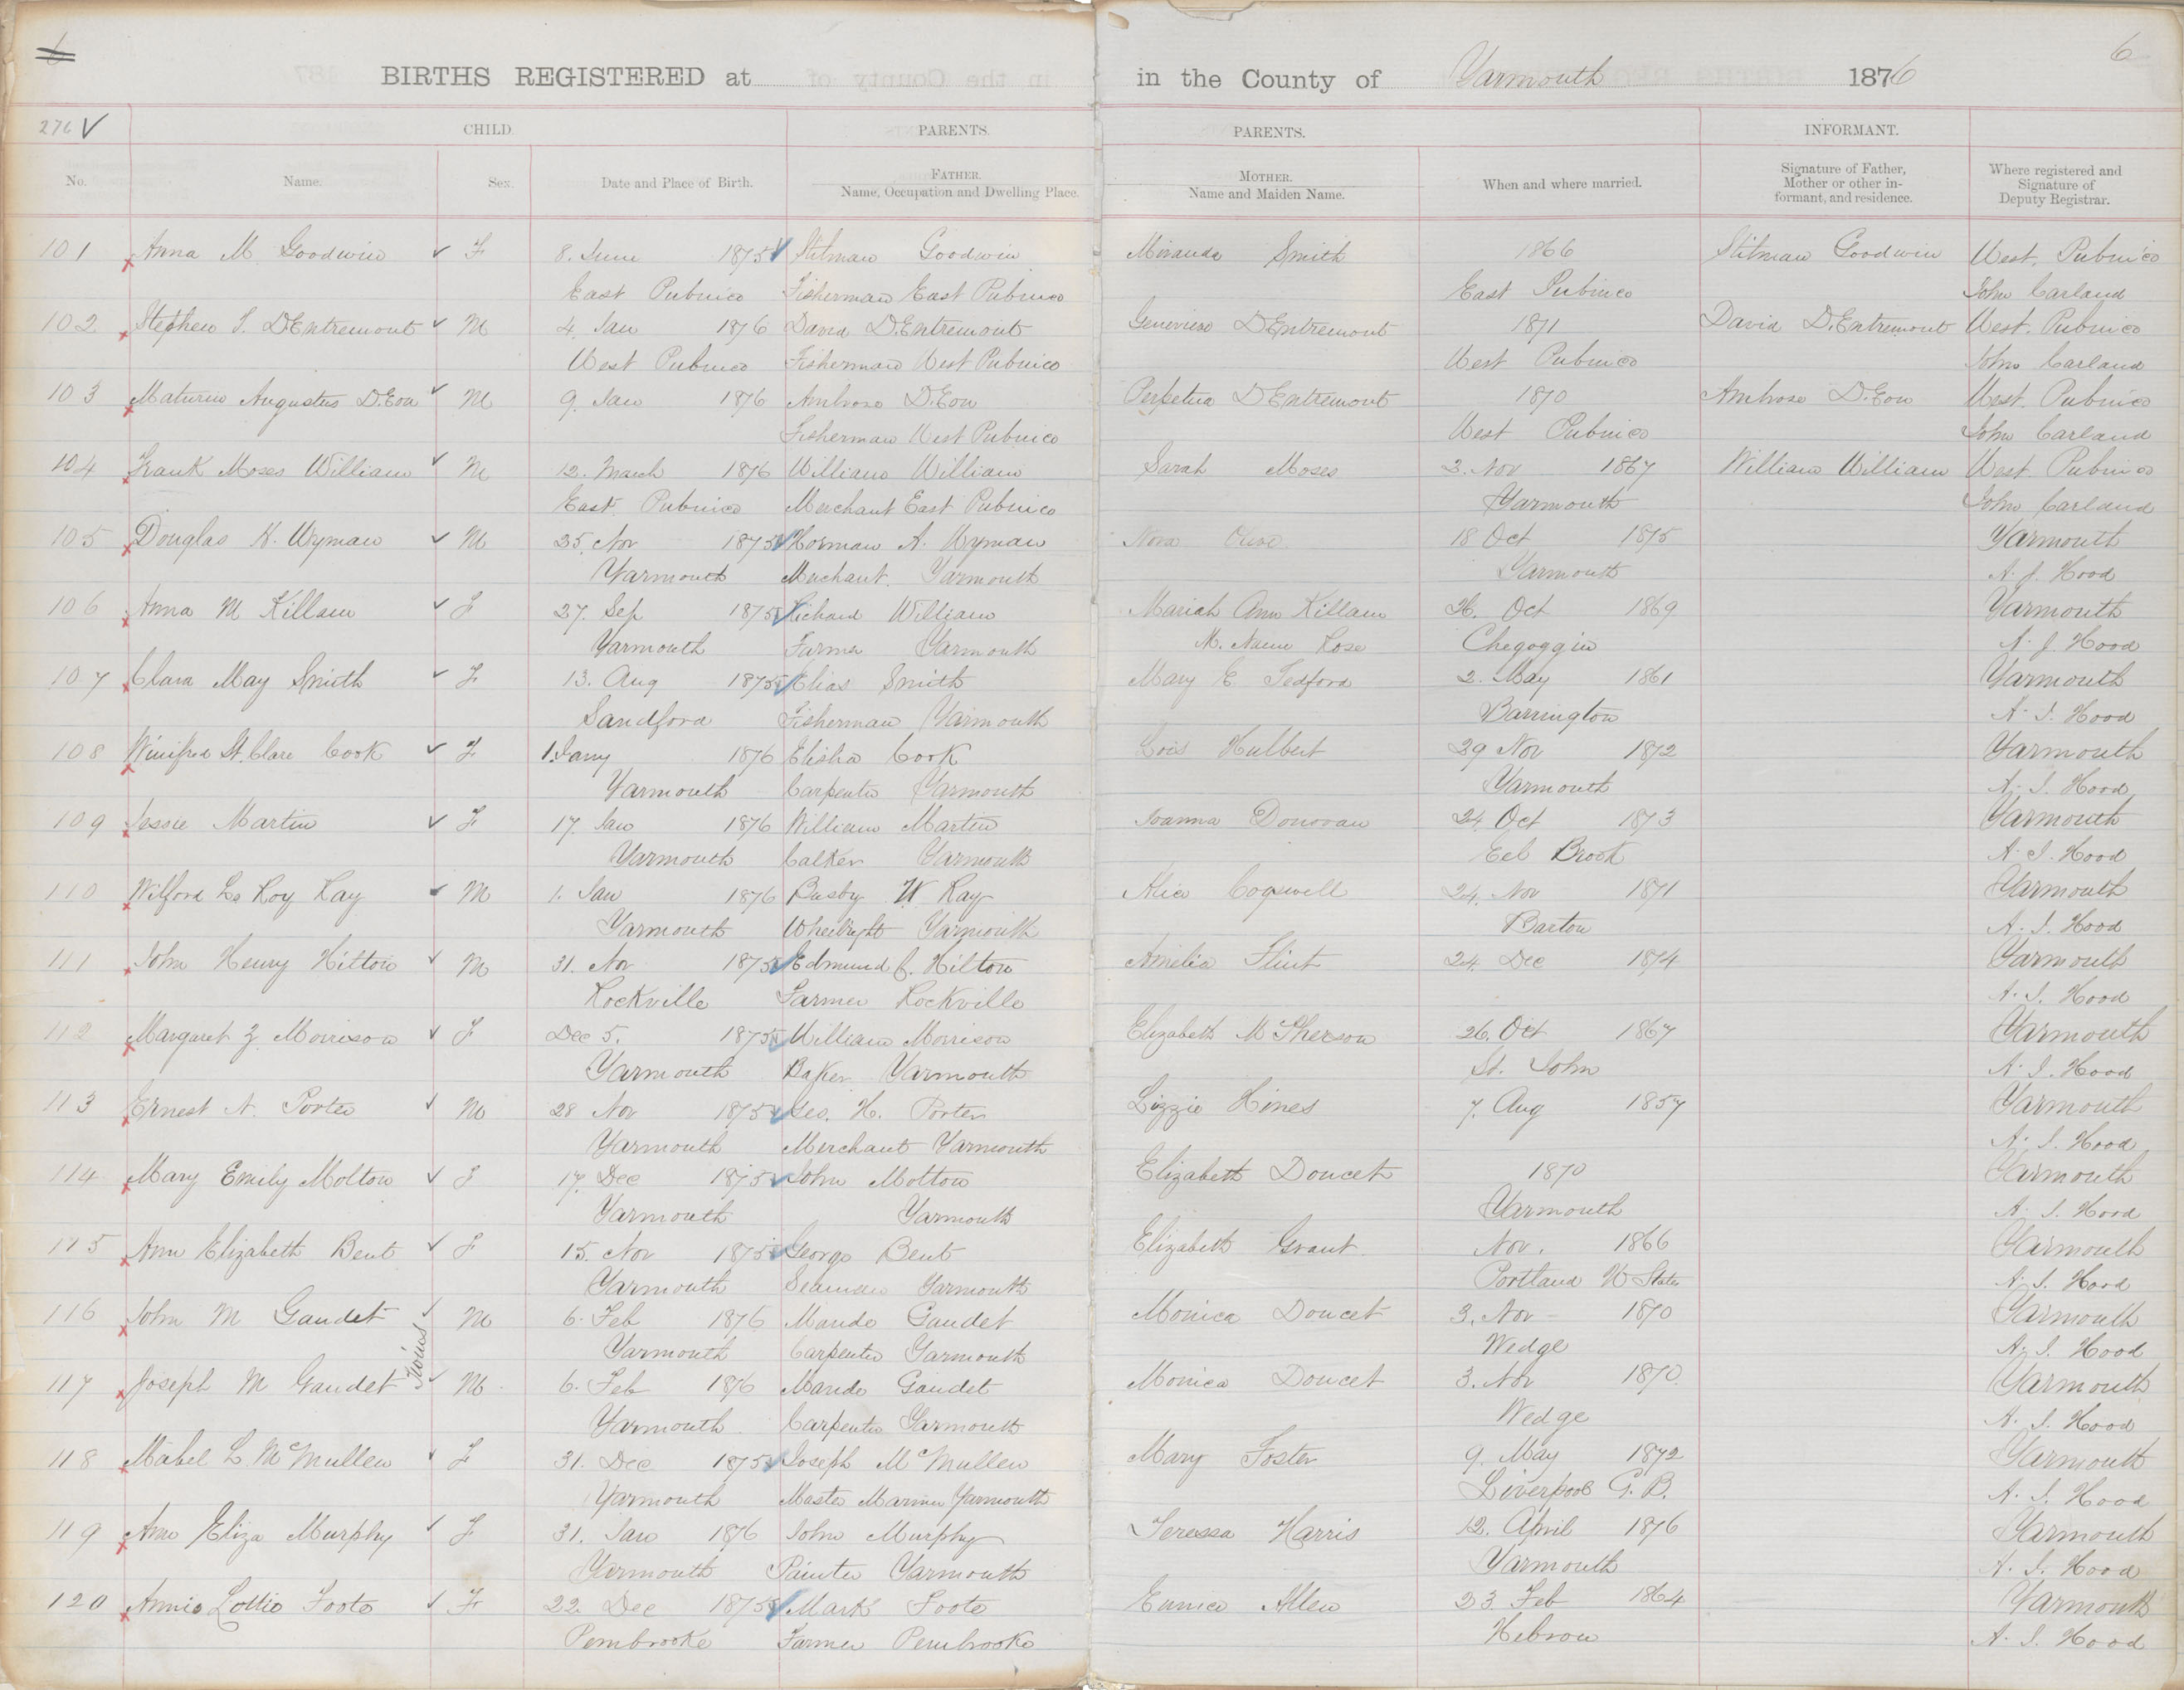 6 6
BIRTHS REGISTERED at in the County of Yarmouth 1876
276 CHILD. PARENTS. PARENTS. INFORMANT.
No. Name. Sex. Date and Place of Birth. FATHER. Name, Occupation and Dwelling Place. MOTHER. Name and Maiden Name. When and where married. Signature of Father, Mother or other informant, and residence. Where registered and Signature of Deputy Registrar.
101 Anna M Goodwin F 8. June 1875 Stilman Goodwin Miranda Smith 1866 Stilman Goodwin West. Pubnico
East Pubnico Fisherman East Pubnico East Pubnico John Carland
102 Stephen S. DEntremont M 4. Jan 1876 David DEntremont Genevieve DEntremont 1871 David D.Entremont West. Pubnico
West Pubnico Fisherman West Pubnico West Pubnico John Carland
103 Maturin Augustus D.Eon M 9. Jan 1876 Ambrose D.Eon Perpetua DEntremont 1870 Ambrose D.Eon West. Pubnico
Fisherman West Pubnico West Pubnico John Carland
104 Frank Moses William M 12. March 1876 William William Sarah Moses 2. Nov 1867 William William West. Pubnico
East. Pubnico Merchant East Pubnico Yarmouth John Carland
105 Douglas H. Wyman M 25. Nov 1875 Norman A. Wyman Nora 18 Oct 1875 Yarmouth
Yarmouth Merchant. Yarmouth Yarmouth A. J. Hood
106 Anna M Killam F 27. Sep 1875 Richard William Mariah Ann Killam 26. Oct 1869 Yarmouth
Yarmouth Farmer Yarmouth M. Name Rose Chegoggin A. J. Hood
107 Clara May Smith F 13. Aug 1875 Elias Smith Mary E Tedford 2. May 1861 Yarmouth
Sandford Fisherman Yarmouth Barrington A. J. Hood
108 Winifred St. Clare Cook F 1. Jany 1876 Elisha Cook Lois Hulbert 29 Nov 1872 Yarmouth
Yarmouth Carpenter Yarmouth Yarmouth A. J. Hood
109 Jessie Martin F 17. Jan 1876 William Martin Joanna Donovan 24. Oct 1873 Yarmouth
Yarmouth Calker Yarmouth Eel Brook A. J. Hood
110 Wilford Le Roy Ray M 1. Jan 1876 Busby W Ray Alice Cogswell 24. Nov 1871 Yarmouth
Yarmouth Wheelright Yarmouth Barton A. J. Hood
111 John Henry Hilton M 31. Nov 1875 Edmund C. Hilton Amelia Flint 24. Dec 1874 Yarmouth
Rockville Farmer Rockville A. J. Hood
112 Margaret J. Morrison F Dec 5. 1875 William Morrison Elizabeth McPherson 26. Oct 1867 Yarmouth
Yarmouth Baker Yarmouth St. John A. J. Hood
113 Ernest A. Porter M 28 Nov 1875 Geo. H. Porter Lizzie Hines 7. Aug 1857 Yarmouth
Yarmouth Merchant Yarmouth A. J. Hood
114 Mary Emily Molton F 17. Dec 1875 John Molton Elizabeth Doucet 1870 Yarmouth
Yarmouth Yarmouth Yarmouth A. J. Hood
115 Ann Elizabeth Bent F 15. Nov 1875 George Bent Elizabeth Grant Nov. 1866 Yarmouth
Yarmouth Seaman Yarmouth Portland U States A. J. Hood
116 John M Gaudet M 6. Feb 1876 Mande Gaudet Monica Doucet 3. Nov 1870 Yarmouth
Twins Yarmouth Carpenter Yarmouth Wedge A. J. Hood
117 Joseph M Gaudet M 6. Feb 1876 Mande Gaudet Monica Doucet 3. Nov 1870. Yarmouth
Yarmouth Carpenter Yarmouth Wedge A. J. Hood
118 Mabel L. McMullen F 31. Dec 1875 Joseph McMullen Mary Foster 9. May 1872 Yarmouth
Yarmouth Master Mariner Yarmouth Liverpool G. B. A. J. Hood
119 Ann Eliza Murphy F 31. Jan 1876 John Murphy Teressa Harris 12. April 1876 Yarmouth
Yarmouth Painter Yarmouth Yarmouth A. J. Hood
120 Annie Lottie Foote F 22. Dec 1875 Mark Foote Eunice Allen 23 Feb 1864 Yarmouth
Pembrooke Farmer Pembrooke Hebron A. J. Hood